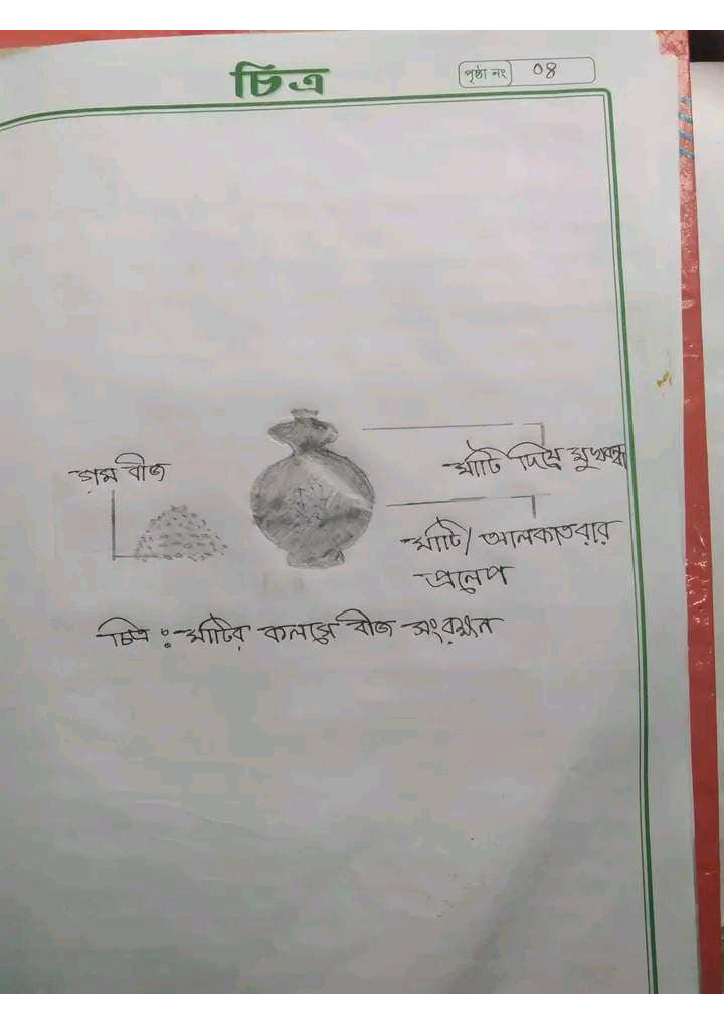 চিত্র
পৃষ্ঠা নং ০৪
গম বীজ
মাটি দিয়ে মুখবন্ধ
মাটি/আলকাতরার
প্রলেপ
চিত্র : মাটির কলসে বীজ সংরক্ষন